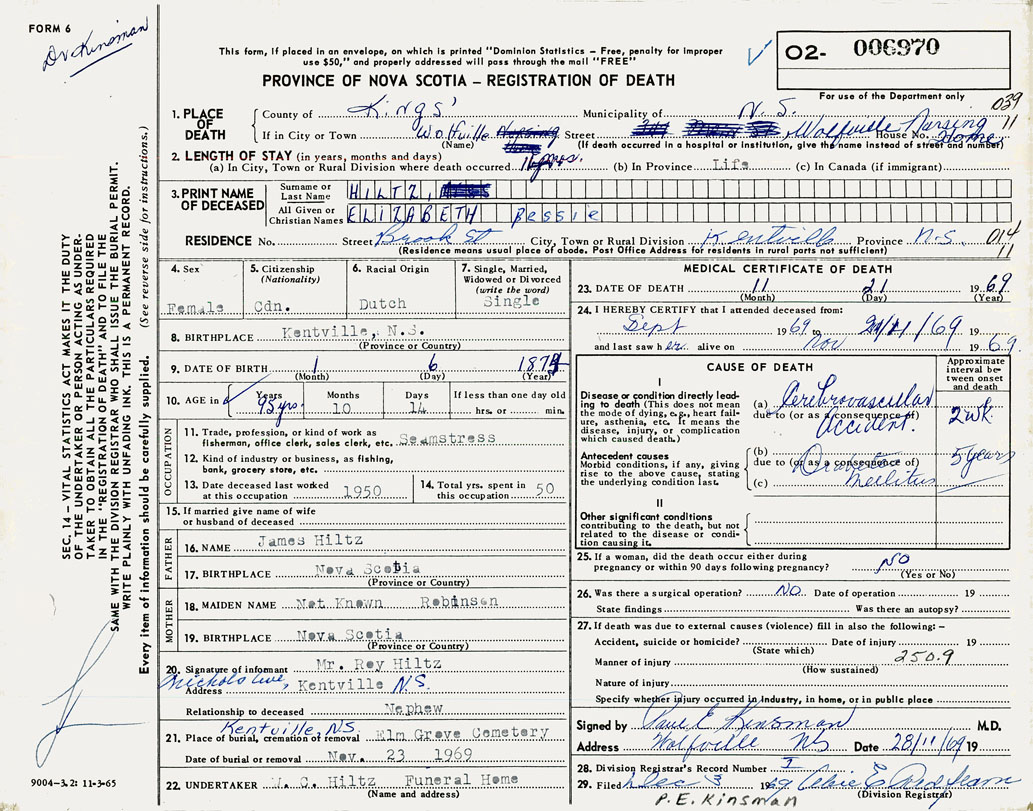 FORM 6
Dr Kinsman
This form, if placed in an envelope, on which is printed "Dominion Statistics – Free, penalty for improper
use $50," and properly addressed will pass through the mail "FREE"
PROVINCE OF NOVA SCOTIA – REGISTRATION OF DEATH
O2- 006970
For use of the Department only
039
11
1. PLACE OF DEATH
County of Kings' Municipality of N.S.
If in City or Town Wolfville Street Wolfville Nursing Home House No.
(Name) (If death occurred in a hospital or institution, give the name instead of street and number)
2. LENGTH OF STAY (in years, months and days)
(a) In City, Town or Rural Division where death occurred yrs. (b) In Province Life (c) In Canada (if immigrant)
3. PRINT NAME OF DECEASED
Surname or Last Name HILTZ,
All Given or Christian Names ELIZABETH Bessie
RESIDENCE No. Street Brook St City, Town or Rural Division Kentville Province N.S. 014
11
(Residence means usual place of abode. Post Office Address for residents in rural parts not sufficient)
4. Sex Female
5. Citizenship (Nationality) Cdn.
6. Racial Origin Dutch
7. Single, Married, Widowed or Divorced (write the word) Single
8. BIRTHPLACE Kentville, N.S.
(Province or Country)
9. DATE OF BIRTH 1 6 1874
(Month) (Day) (Year)
10. AGE in Years 95 yrs. Months 10 Days 14 If less than one day old hrs. or min.
OCCUPATION
11. Trade, profession, or kind of work as
fisherman, office clerk, sales clerk, etc. Seamstress
12. Kind of industry or business, as fishing,
bank, grocery store, etc.
13. Date deceased last worked
at this occupation 1950
14. Total yrs. spent in
this occupation 50
15. If married give name of wife
or husband of deceased
FATHER
16. NAME James Hiltz
17. BIRTHPLACE Nova Scotia
(Province or Country)
MOTHER
18. MAIDEN NAME Not Known Robinson
19. BIRTHPLACE Nova Scotia
(Province or Country)
20. Signature of informant Mr. Roy Hiltz
Address Nichols Ave, Kentville N.S.
Relationship to deceased Nephew
Kentville, N.S.
21. Place of burial, cremation or removal Elm Grove Cemetery
Date of burial or removal Nov. 23 1969
22. UNDERTAKER W. C. Hiltz Funeral Home
(Name and address)
MEDICAL CERTIFICATE OF DEATH
23. DATE OF DEATH 11 21 1969
(Month) (Day) (Year)
24. I HEREBY CERTIFY that I attended deceased from:
Sept 1969 to 21/11/69 19
and last saw her alive on Nov 1969
CAUSE OF DEATH
Approximate interval between onset and death
I
Disease or condition directly leading to death (This does not mean
the mode of dying, e.g., heart failure, asthenia, etc. It means the
disease, injury, or complication
which caused death.)
(a) Cerebrovascular
due to (or as a consequence of)
Accident. 2 wk.
Antecedent causes
Morbid conditions, if any, giving
rise to the above cause, stating
the underlying condition last.
(b)
due to (or as a consequence of) Diabetes 5 years
(c) Mellitus
II
Other significant conditions
contributing to the death, but not
related to the disease or condition causing it.
25. If a woman, did the death occur either during
pregnancy or within 90 days following pregnancy? NO
(Yes or No)
26. Was there a surgical operation? NO Date of operation 19
State findings Was there an autopsy?
27. If death was due to external causes (violence) fill in also the following: –
Accident, suicide or homicide? Date of injury 19
(State which)
Manner of injury 250.9
(How sustained)
Nature of injury
Specify whether injury occurred in industry, in home, or in public place
Signed by Paul E Kinsman M.D.
Address Wolfville NS Date 28/11/69 19
28. Division Registrar's Record Number
29. Filed Dec 3 1969
(Division Registrar)
P.E. Kinsman
SEC. 14 – VITAL STATISTICS ACT MAKES IT THE DUTY
OF THE UNDERTAKER OR PERSON ACTING AS UNDER-
TAKER TO OBTAIN ALL THE PARTICULARS REQUIRED
IN THE "REGISTRATION OF DEATH" AND TO FILE THE
SAME WITH THE DIVISION REGISTRAR WHO SHALL ISSUE THE BURIAL PERMIT.
WRITE PLAINLY WITH UNFADING INK. THIS IS A PERMANENT RECORD.
Every item of information should be carefully supplied. (See reverse side for instructions.)
9004–3.2: 11-3-65